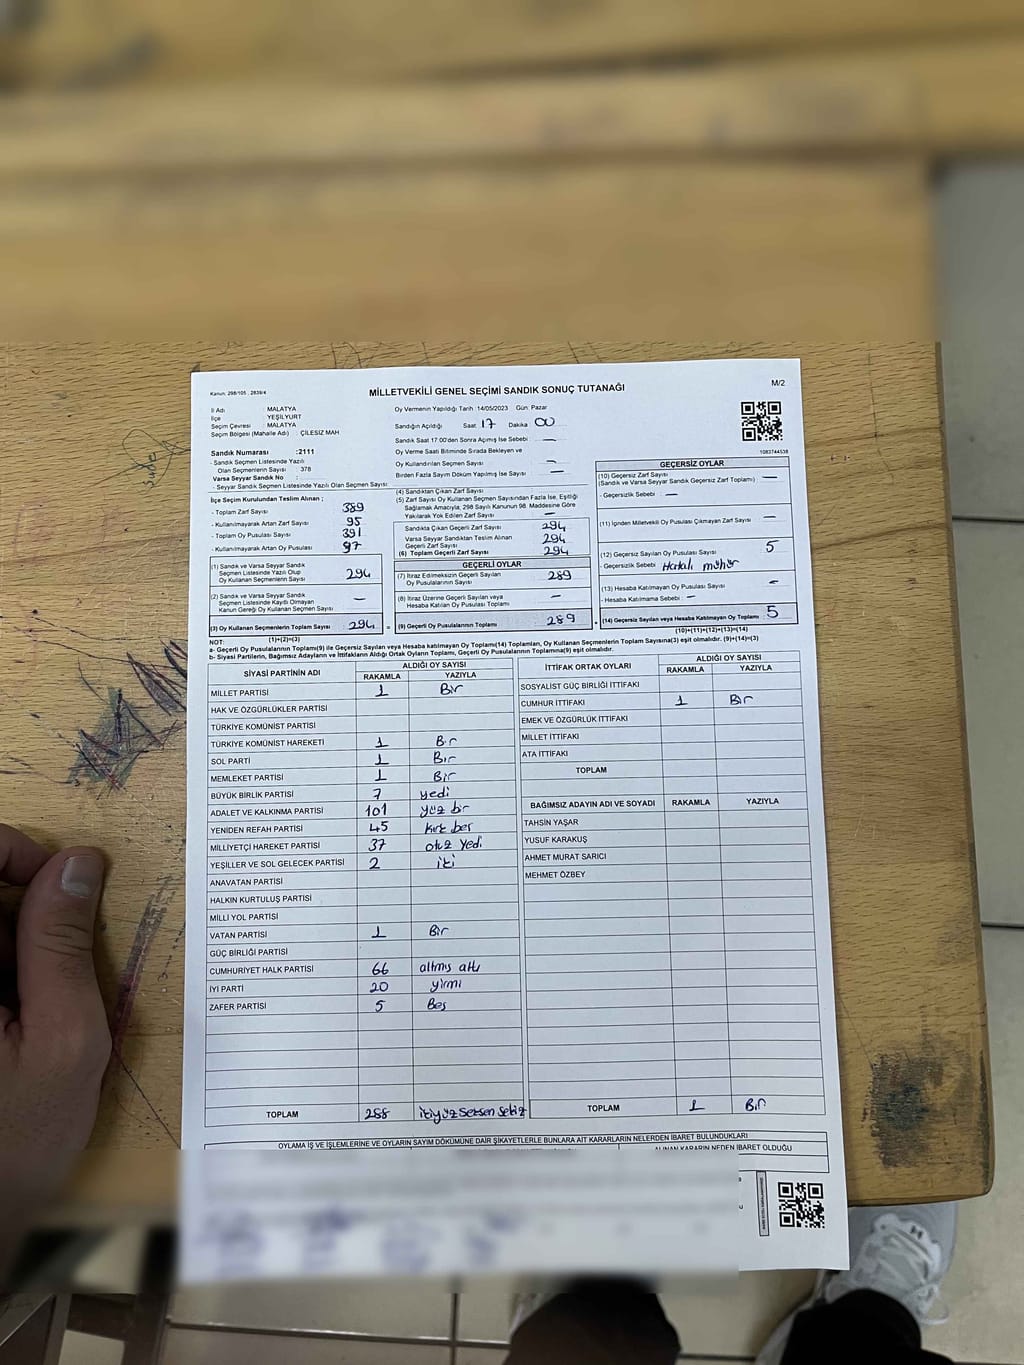 Kanun: 298/105 , 2839/4
MİLLETVEKİLİ GENEL SEÇİMİ SANDIK SONUÇ TUTANAĞI
M/2
İl Adı : MALATYA
İlçe : YEŞİLYURT
Seçim Çevresi : MALATYA
Seçim Bölgesi (Mahalle Adı) : ÇİLESİZ MAH
Oy Vermenin Yapıldığı Tarih :14/05/2023 Gün: Pazar
Sandığın Açıldığı Saat 17 Dakika 00
Sandık Saat 17.00'den Sonra Açılmış İse Sebebi : —
Oy Verme Saati Bitiminde Sırada Bekleyen ve
Oy Kullandırılan Seçmen Sayısı —
Birden Fazla Sayım Döküm Yapılmış İse Sayısı : —
1083744538
Sandık Numarası :2111
- Sandık Seçmen Listesinde Yazılı
Olan Seçmenlerin Sayısı : 378
Varsa Seyyar Sandık No :
- Seyyar Sandık Seçmen Listesinde Yazılı Olan Seçmen Sayısı :
İlçe Seçim Kurulundan Teslim Alınan ;
- Toplam Zarf Sayısı 389
- Kullanılmayarak Artan Zarf Sayısı 95
- Toplam Oy Pusulası Sayısı 391
- Kullanılmayarak Artan Oy Pusulası 97
(1) Sandık ve Varsa Seyyar Sandık
Seçmen Listesinde Yazılı Olup
Oy Kullanan Seçmenlerin Sayısı 294
(2) Sandık ve Varsa Seyyar Sandık
Seçmen Listesinde Kayıtlı Olmayan
Kanun Gereği Oy Kullanan Seçmen Sayısı —
(3) Oy Kullanan Seçmenlerin Toplam Sayısı 294
(1)+(2)=(3)
(4) Sandıktan Çıkan Zarf Sayısı
(5) Zarf Sayısı Oy Kullanan Seçmen Sayısından Fazla İse, Eşitliği
Sağlamak Amacıyla; 298 Sayılı Kanunun 98. Maddesine Göre
Yakılarak Yok Edilen Zarf Sayısı —
Sandıkta Çıkan Geçerli Zarf Sayısı 294
Varsa Seyyar Sandıktan Teslim Alınan
Geçerli Zarf Sayısı 294
(6) Toplam Geçerli Zarf Sayısı 294
GEÇERLİ OYLAR
(7) İtiraz Edilmeksizin Geçerli Sayılan
Oy Pusulalarının Sayısı 289
(8) İtiraz Üzerine Geçerli Sayılan veya
Hesaba Katılan Oy Pusulası Toplamı —
(9) Geçerli Oy Pusulalarının Toplamı 289
GEÇERSİZ OYLAR
(10) Geçersiz Zarf Sayısı
(Sandık ve Varsa Seyyar Sandık Geçersiz Zarf Toplamı) —
- Geçersizlik Sebebi : —
(11) İçinden Milletvekili Oy Pusulası Çıkmayan Zarf Sayısı —
(12) Geçersiz Sayılan Oy Pusulası Sayısı 5
- Geçersizlik Sebebi Hatalı mühür
(13) Hesaba Katılmayan Oy Pusulası Sayısı —
- Hesaba Katılmama Sebebi : —
(14) Geçersiz Sayılan veya Hesaba Katılmayan Oy Toplamı 5
(10)+(11)+(12)+(13)=(14)
NOT:
a- Geçerli Oy Pusulalarının Toplamı(9) ile Geçersiz Sayılan veya Hesaba katılmayan Oy Toplamı(14) Toplamları, Oy Kullanan Seçmenlerin Toplam Sayısına(3) eşit olmalıdır. (9)+(14)=(3)
b- Siyasi Partilerin, Bağımsız Adayların ve İttifakların Aldığı Ortak Oyların Toplamı, Geçerli Oy Pusulalarının Toplamına(9) eşit olmalıdır.
SİYASİ PARTİNİN ADI ALDIĞI OY SAYISI
RAKAMLA YAZIYLA
MİLLET PARTİSİ 1 Bir
HAK VE ÖZGÜRLÜKLER PARTİSİ
TÜRKİYE KOMÜNİST PARTİSİ
TÜRKİYE KOMÜNİST HAREKETİ 1 Bir
SOL PARTİ 1 Bir
MEMLEKET PARTİSİ 1 Bir
BÜYÜK BİRLİK PARTİSİ 7 yedi
ADALET VE KALKINMA PARTİSİ 101 yüz bir
YENİDEN REFAH PARTİSİ 45 kırk beş
MİLLİYETÇİ HAREKET PARTİSİ 37 otuz yedi
YEŞİLLER VE SOL GELECEK PARTİSİ 2 iki
ANAVATAN PARTİSİ
HALKIN KURTULUŞ PARTİSİ
MİLLİ YOL PARTİSİ
VATAN PARTİSİ 1 Bir
GÜÇ BİRLİĞİ PARTİSİ
CUMHURİYET HALK PARTİSİ 66 altmış altı
İYİ PARTİ 20 yirmi
ZAFER PARTİSİ 5 Beş
TOPLAM 288 ikiyüz seksen sekiz
İTTİFAK ORTAK OYLARI ALDIĞI OY SAYISI
RAKAMLA YAZIYLA
SOSYALİST GÜÇ BİRLİĞİ İTTİFAKI
CUMHUR İTTİFAKI 1 Bir
EMEK VE ÖZGÜRLÜK İTTİFAKI
MİLLET İTTİFAKI
ATA İTTİFAKI
TOPLAM
BAĞIMSIZ ADAYIN ADI VE SOYADI RAKAMLA YAZIYLA
TAHSİN YAŞAR
YUSUF KARAKUŞ
AHMET MURAT SARICI
MEHMET ÖZBEY
TOPLAM 1 Bir
OYLAMA İŞ VE İŞLEMLERİNE VE OYLARIN SAYIM DÖKÜMÜNE DAİR ŞİKAYETLERLE BUNLARA AİT KARARLARIN NELERDEN İBARET BULUNDUKLARI
ALINAN KARARIN NEDEN İBARET OLDUĞU